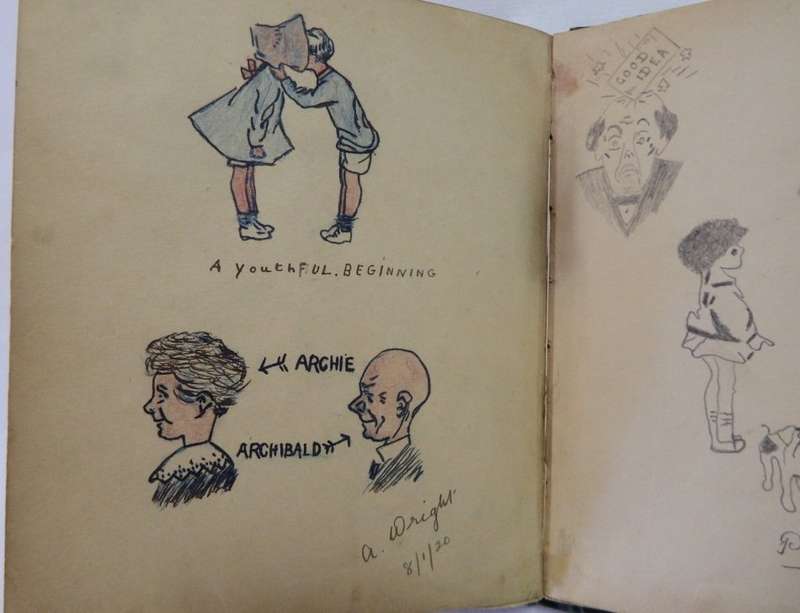 A youthFUL. BEGINNING
ARCHIE
ARCHIBALD
A. Wright
8/1/20
GOOD
IDEA